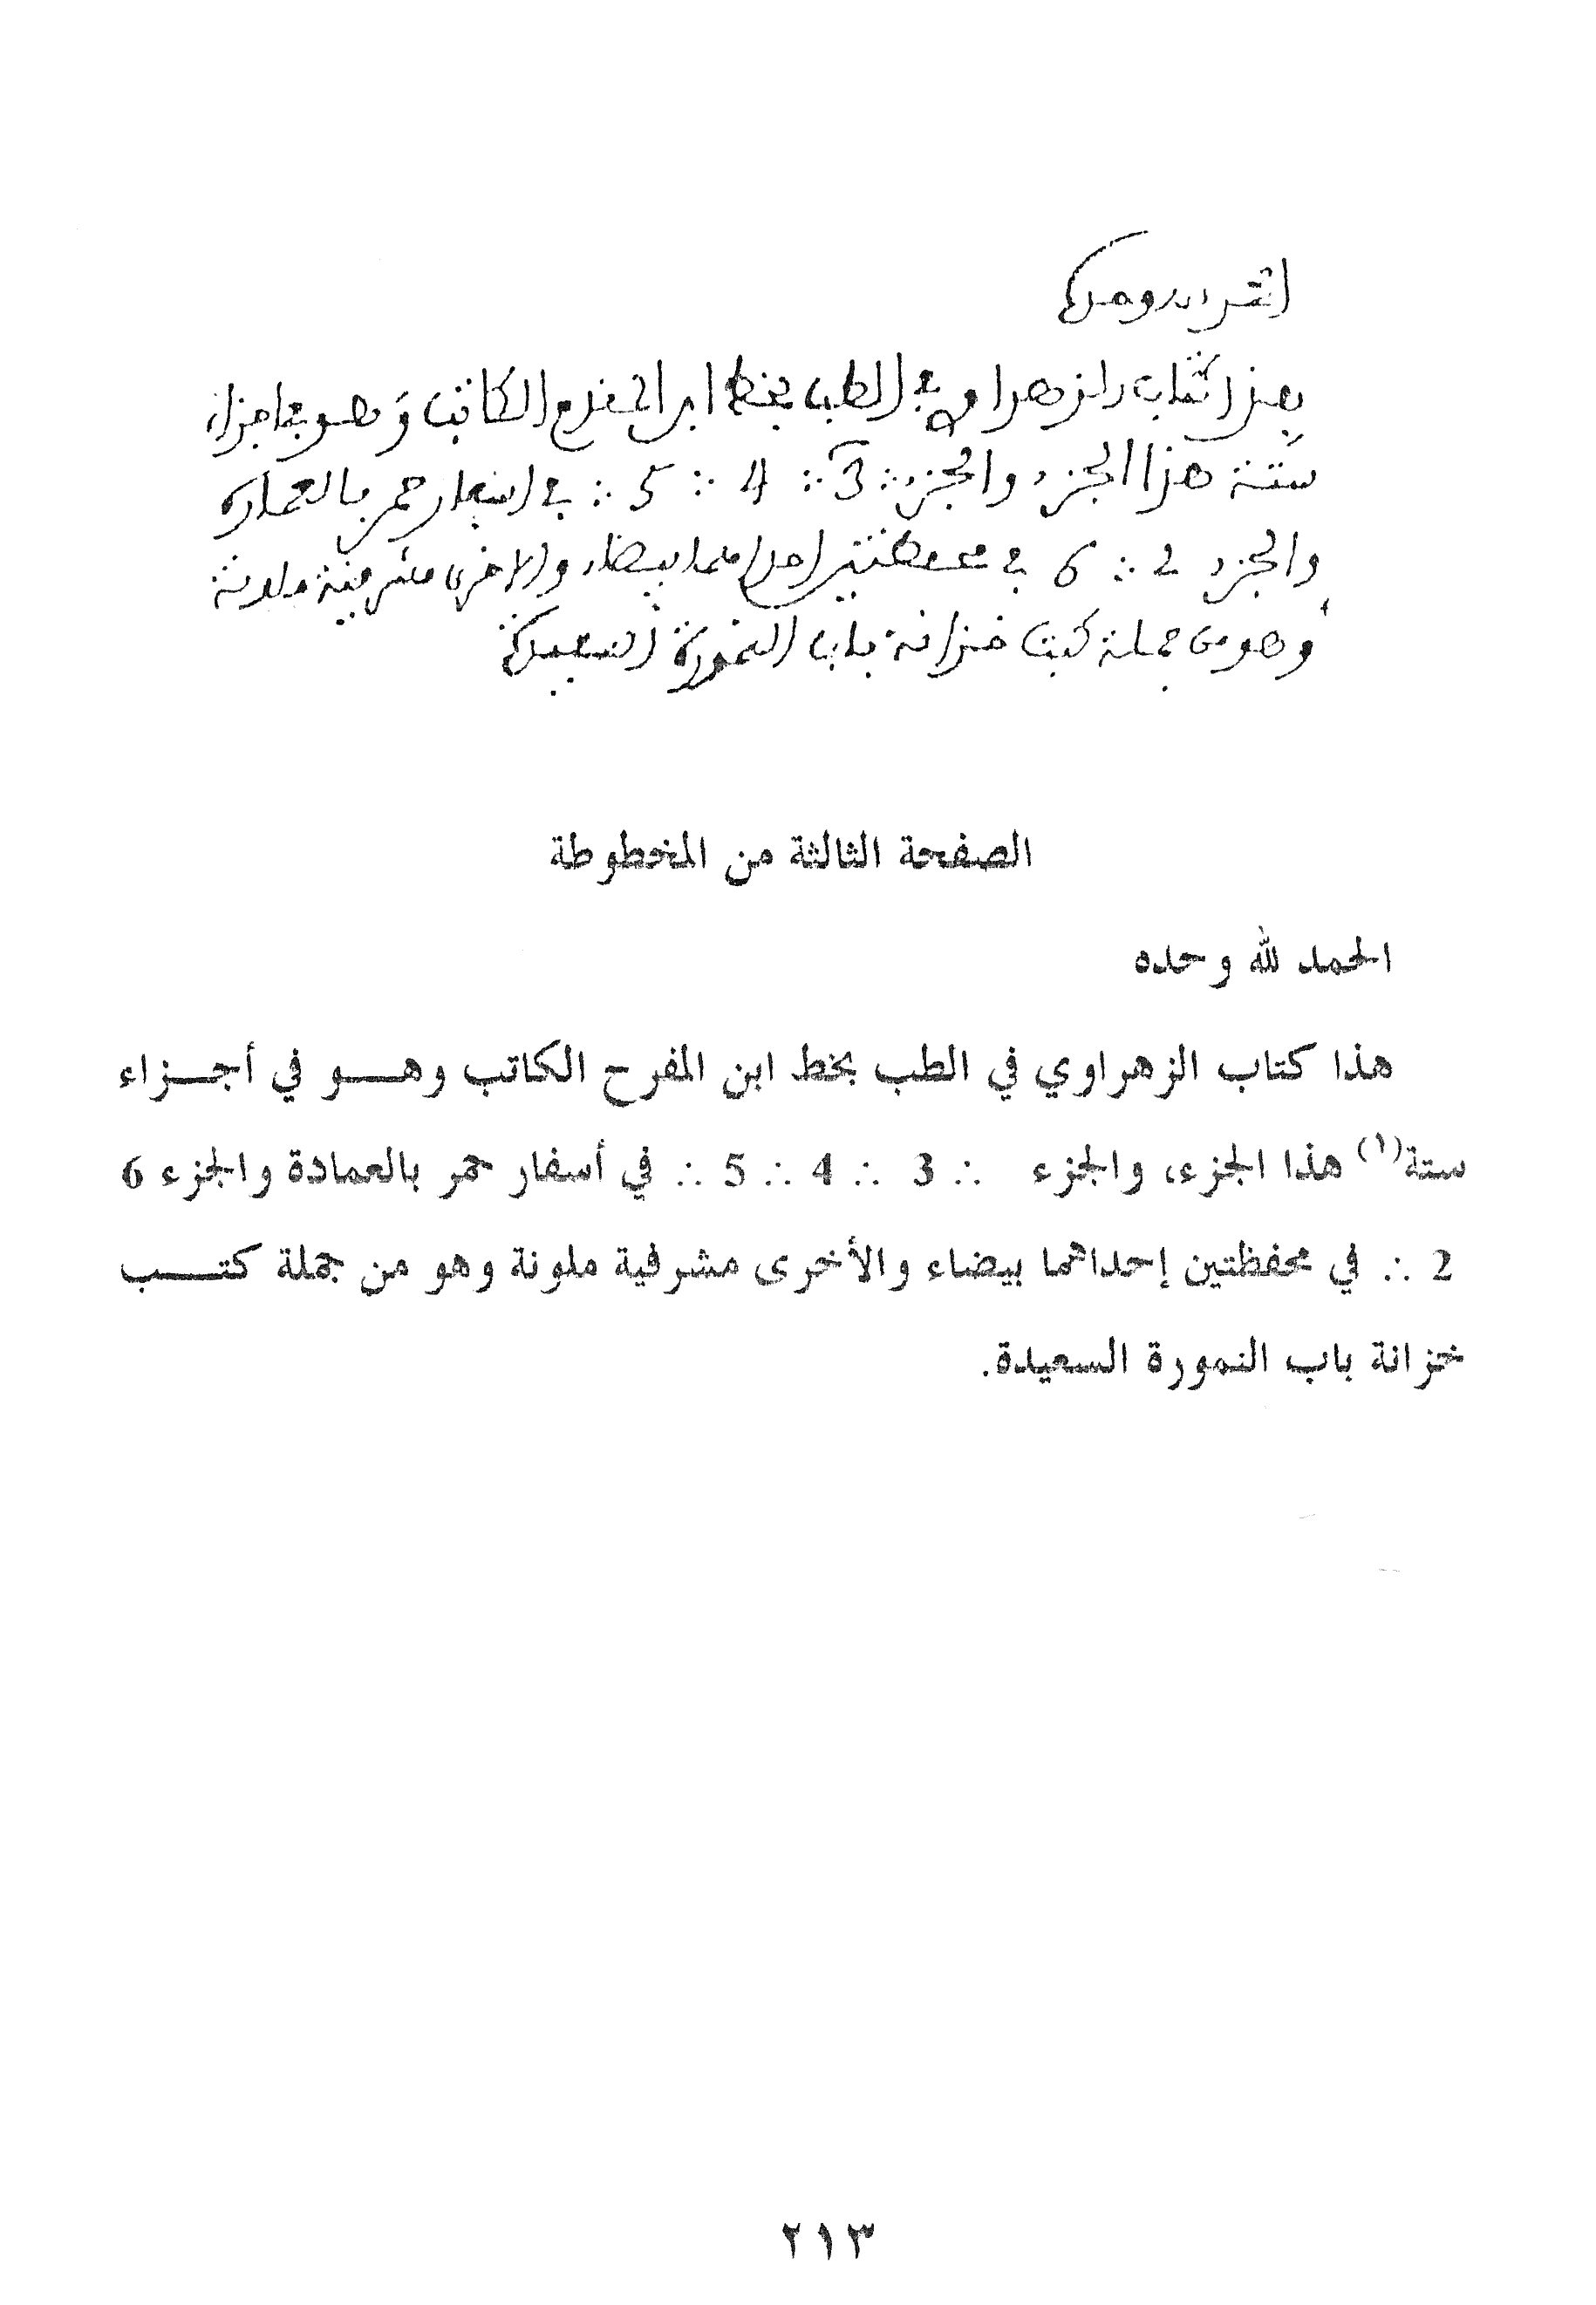 الحمد لله وحده
هذا كتاب الزهراوي في الطب بخط ابن المفرح الكاتب وهو في اجزاء
ستة هذا الجزء والجزء ∴ 3 ∴ 4 ∴ 5 ∴ في اسفار حمر بالعمادة
والجزء 2 ∴ 6 في محفظتين احداهما بيضاء والاخرى مشرفية ملونة
وهو من جملة كتب خزانة باب النمورة السعيدة
الصفحة الثالثة من المخطوطة
الحمد لله وحده
هذا كتاب الزهراوي في الطب بخط ابن المفرح الكاتب وهـــو في أجـــزاء
ستة(١) هذا الجزء، والجزء ∴ 3 ∴ 4 ∴ 5 ∴ في أسفار حمر بالعمادة والجزء 6
2 ∴ في محفظتين إحداهما بيضاء والأخرى مشرفية ملونة وهو من جملة كتـــب
خزانة باب النمورة السعيدة.
٢١٣